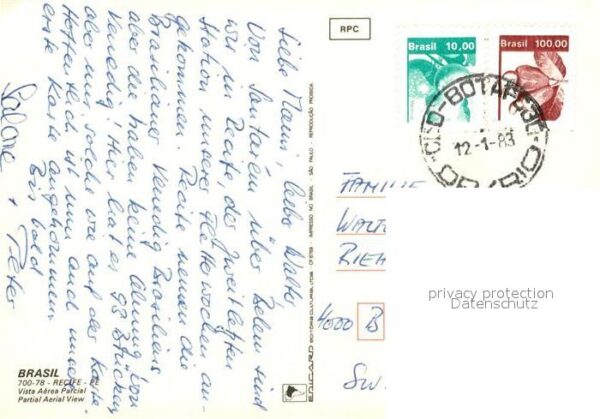 RPC
Brasil 10,00
Brasil 100,00
12-1-83
Liebe Mami, lieber Walter
Von Santarém über Belem sind
wir in Recife, der zweitletzten
Station unserer Flitterwochen an-
gekommen. Recife nennen die
Brasilianer Venedig Brasiliens
aber die haben keine Ahnung von
Venedig! Hier hat es 93 Brücken
aber nur solche wie auf der Karte.
Hoffentlich ist nun auch unsere
erste Karte angekommen.
Bis bald
+ Peter
FAMILIE
WALT
RIEH
4000 B
SW
privacy protection
Datenschutz
BRASIL
700-78 - RECIFE - PE
Vista Aérea Parcial
Partial Aerial View
IMPRESSO NO BRASIL - SÃO PAULO - REPRODUÇÃO PROIBIDA